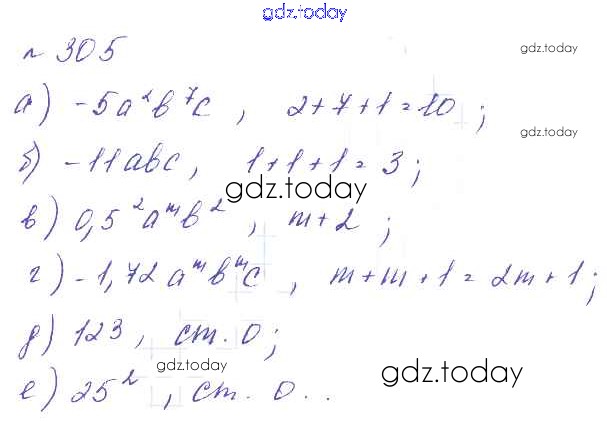 gdz.today
№ 305
gdz.today
а) -5a²b⁷c, 2+7+1=10;
gdz.today
б) -11abc, 1+1+1=3;
gdz.today
в) 0,5²aᵐb², m+2;
г) -1,72aᵐbᵐc, m+m+1=2m+1;
д) 123, ст. 0;
gdz.today
gdz.today
е) 25², ст. 0..